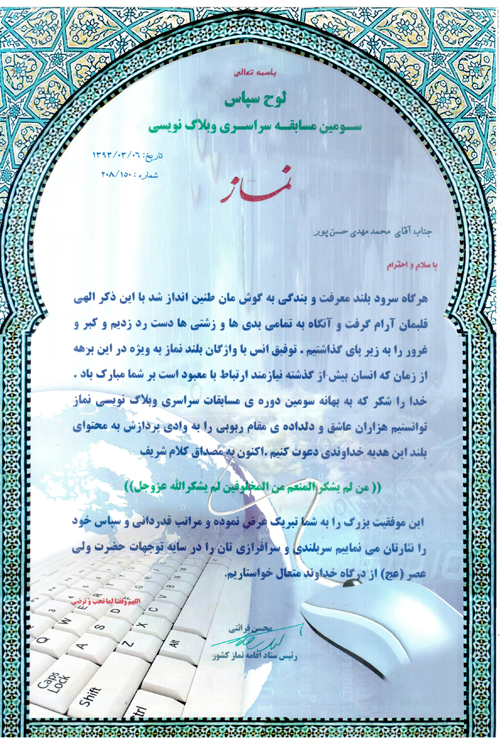 باسمه تعالی
لوح سپاس
سومین مسابقه سراسری وبلاگ نویسی
تاریخ: ۱۳۹۳/۰۳/۰۶
شماره: ۲۰۸/۱۵۰
نماز
جناب آقای محمد مهدی حسن پور
با سلام و احترام
هرگاه سرود بلند معرفت و بندگی به گوش مان طنین انداز شد با این ذکر الهی
قلبمان آرام گرفت و آنگاه به تمامی بدی ها و زشتی ها دست رد زدیم و کبر و
غرور را به زیر پای گذاشتیم . توفیق انس با واژگان بلند نماز به ویژه در این برهه
از زمان که انسان بیش از گذشته نیازمند ارتباط با معبود است بر شما مبارک باد .
خدا را شکر که به بهانه سومین دوره ی مسابقات سراسری وبلاگ نویسی نماز
توانستیم هزاران عاشق و دلداده ی مقام ربوبی را به وادی پردازش به محتوای
بلند این هدیه خداوندی دعوت کنیم .اکنون به مصداق کلام شریف
(( من لم یشکر المنعم من المخلوقین لم یشکرالله عزوجل))
این موفقیت بزرگ را به شما تبریک عرض نموده و مراتب قدردانی و سپاس خود
را نثارتان می نماییم سربلندی و سرافرازی تان را در سایه توجهات حضرت ولی
عصر (عج) از درگاه خداوند متعال خواستاریم.
اللهم وفقنا لما تحب و ترضی
محسن قرائتی
رئیس ستاد اقامه نماز کشور
Q W E R
A S D
Z X Alt
Caps Lock
Shift
Ctrl